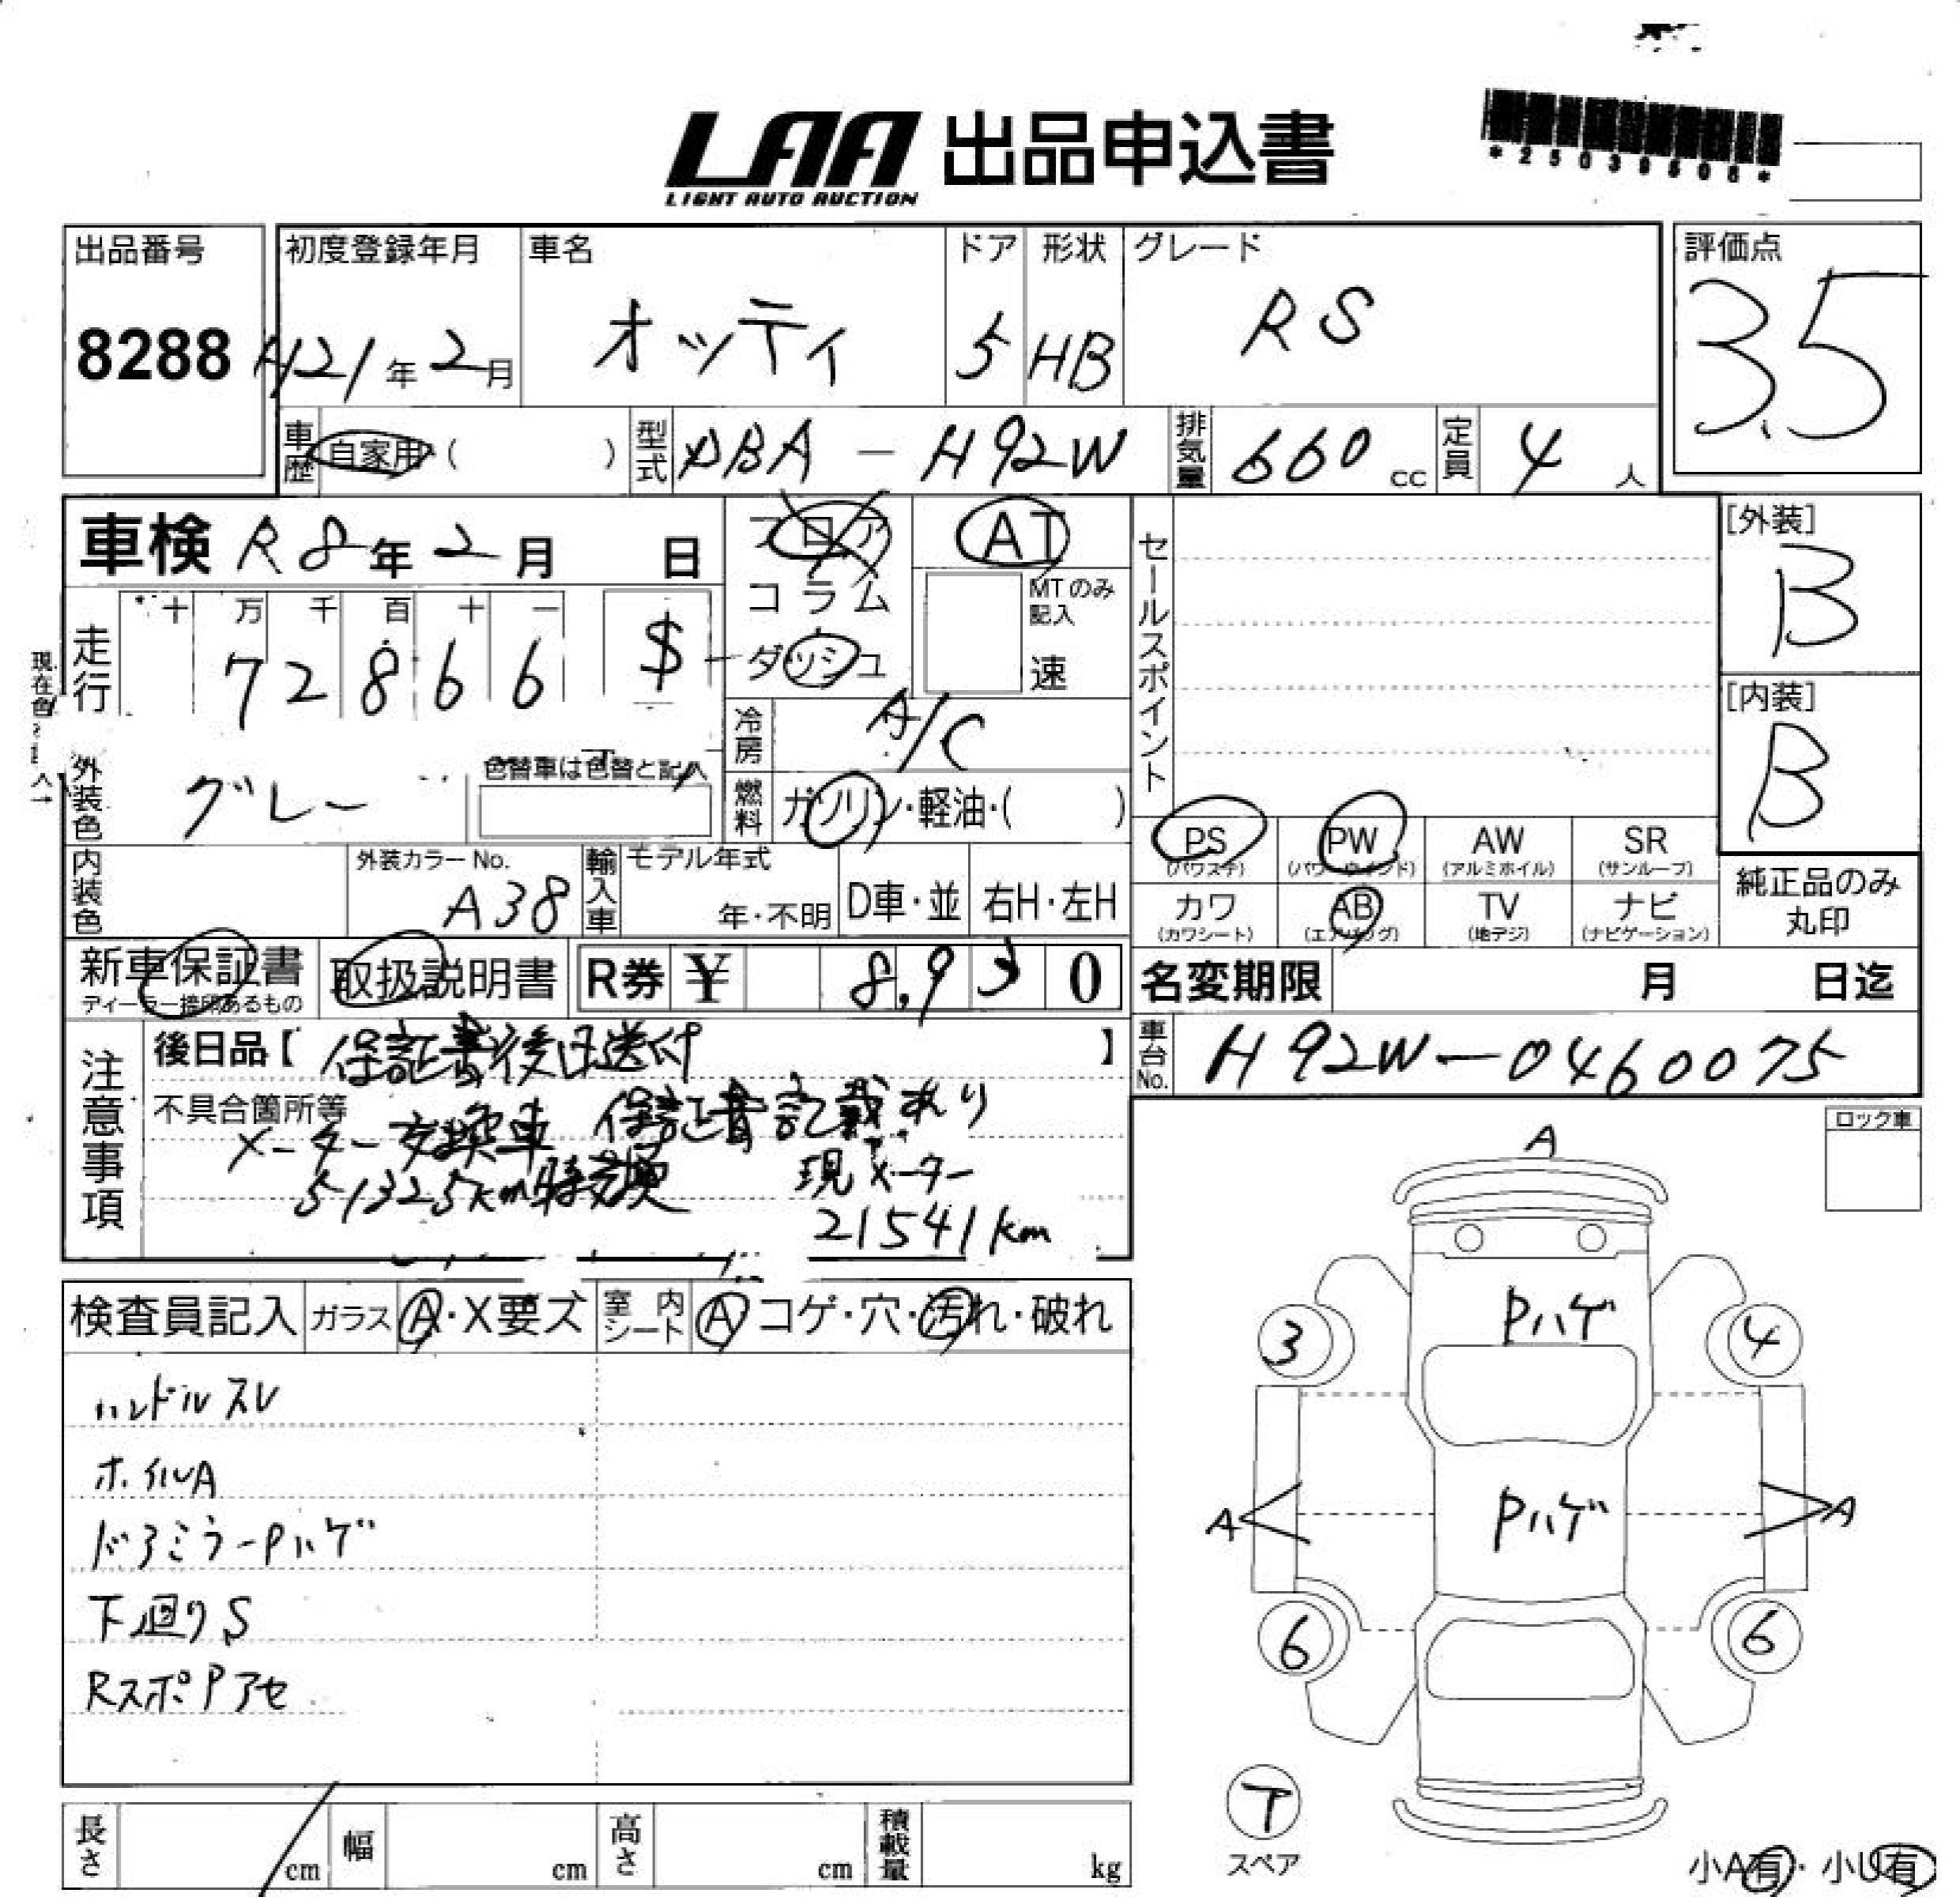 LAA 出品申込書
LIGHT AUTO AUCTION
出品番号
8288
初度登録年月
H21年2月
車名
オッティ
ドア
5
形状
HB
グレード
RS
評価点
3.5
車歴 自家用・( )
型式 DBA-H92W
排気量 660cc
定員 4人
車検 R8年2月 日
フロア
コラム
ダッシュ
AT
MTのみ記入
速
セールスポイント
[外装]
B
[内装]
B
走行
十 万 千 百 十 一
72866 $
冷房 A/C
燃料 ガソリン・軽油・( )
外装色 グレー
色替車は色替と記入
内装色
外装カラーNo.
A38
輸入車 モデル年式
年・不明
D車・並
右H・左H
PS (パワステ)
PW (パワーウインド)
AW (アルミホイル)
SR (サンルーフ)
カワ (カワシート)
AB (エアバッグ)
TV (地デジ)
ナビ (ナビゲーション)
純正品のみ
丸印
新車保証書
ディーラー捺印あるもの
取扱説明書
R券 ¥ 8,930
名変期限 月 日迄
車台No. H92W-0460075
注意事項
後日品【 保証書後日送付 】
不具合箇所等
メーター交換車 保証書記載あり
51325km時交換 現メーター
21541km
検査員記入 ガラス A・X要ズ
室内シート A コゲ・穴・汚れ・破れ
ハンドルスレ
ホイルA
ドアミラーPハゲ
下廻りS
RスポPアセ
ロック車
A
Pハゲ
3
4
Pハゲ
A
A
6
6
T
スペア
小A有・小U有
長さ cm
幅 cm
高さ cm
積載量 kg